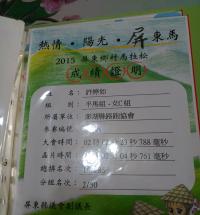 熱情・陽光・屏東馬
2015 屏東鄉村馬拉松
成績證明
姓名：許婷如
組別：半馬組-女C組
所屬單位：澎湖縣路跑協會
參賽編號：
大會時間：02時
23秒788毫秒
晶片時間：02時
04秒751毫秒
總排名次：
分組名次：2/30
屏東縣議會副議長